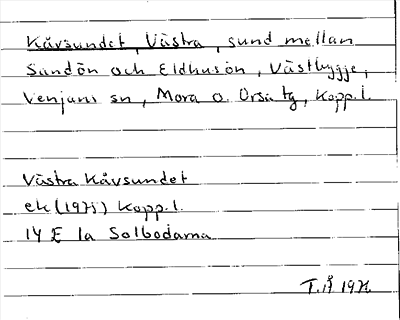 Kåvsundet, Västra, sund mellan
Sandön och Eldhusön, Västbygge,
Venjans sn, Mora o. Orsa tg, Kopp.l.
Västra Kåvsundet
ek (1971) Kopp.l.
14 E 1a Solbodarna
T.Å 197